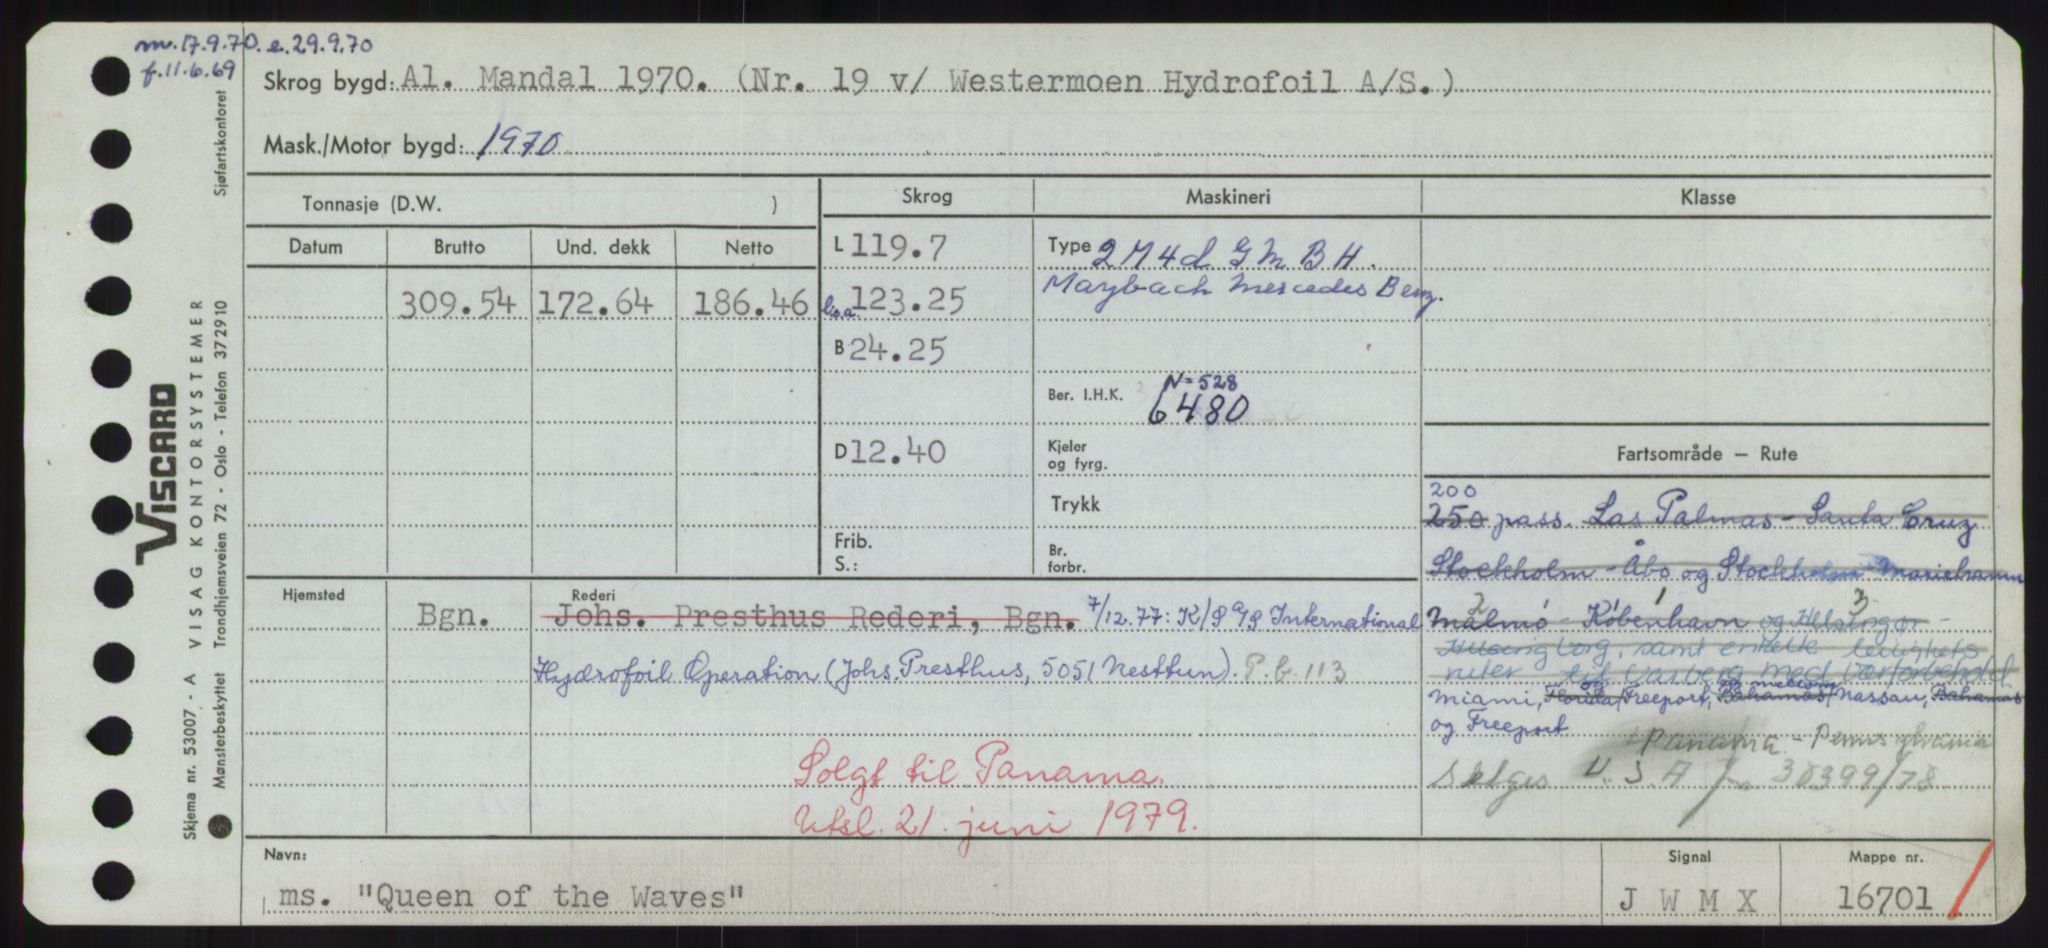 m. 17.9.70. e. 29.9.70
f. 11.6.69
Skrog bygd: Al. Mandal 1970. (Nr. 19 v/ Westermoen Hydrofoil A/S.)
Mask./Motor bygd: 1970
Tonnasje (D.W. )
Skrog
Maskineri
Klasse
Datum Brutto Und. dekk Netto
L 119.7
Type 2 M 4 d G M B H.
Maybach Mercedes Benz.
309.54 172.64 186.46
l.o.a. 123.25
B 24.25
N = 528
Ber. I.H.K. 6480
D 12.40
Kjeler
og fyrg.
Trykk
Frib.
S.:
Br.
forbr.
Fartsområde – Rute
200
250 pass. Las Palmas - Santa Cruz
Stockholm - Åbo og Stockholm Mariehamn
2 1 3
Malmö - København og Helsingør -
Helsingborg, samt enkelte leilighets
ruter til Varberg med
og
Miami, Florida/Freeport, Bahamas/Nassau, Bahamas
og Freeport
Panama - Pennsylvania
Selges U.S.A 30399/78
Hjemsted
Rederi
Bgn. Johs. Presthus Rederi, Bgn. 7/12.77: K/S A/S International
Hydrofoil Operation (Johs. Presthus, 5051 Nesttun). P.b. 113
Solgt til Panama.
Utsl. 21. juni 1979.
Navn:
ms. "Queen of the Waves"
Signal
J W M X
Mappe nr.
16701
VISCARD
VISAG KONTORSYSTEMER
Skjema nr. 53007 - A
Mønsterbeskyttet Trondhjemsveien 72 - Oslo - Telefon 372910 Sjøfartskontoret